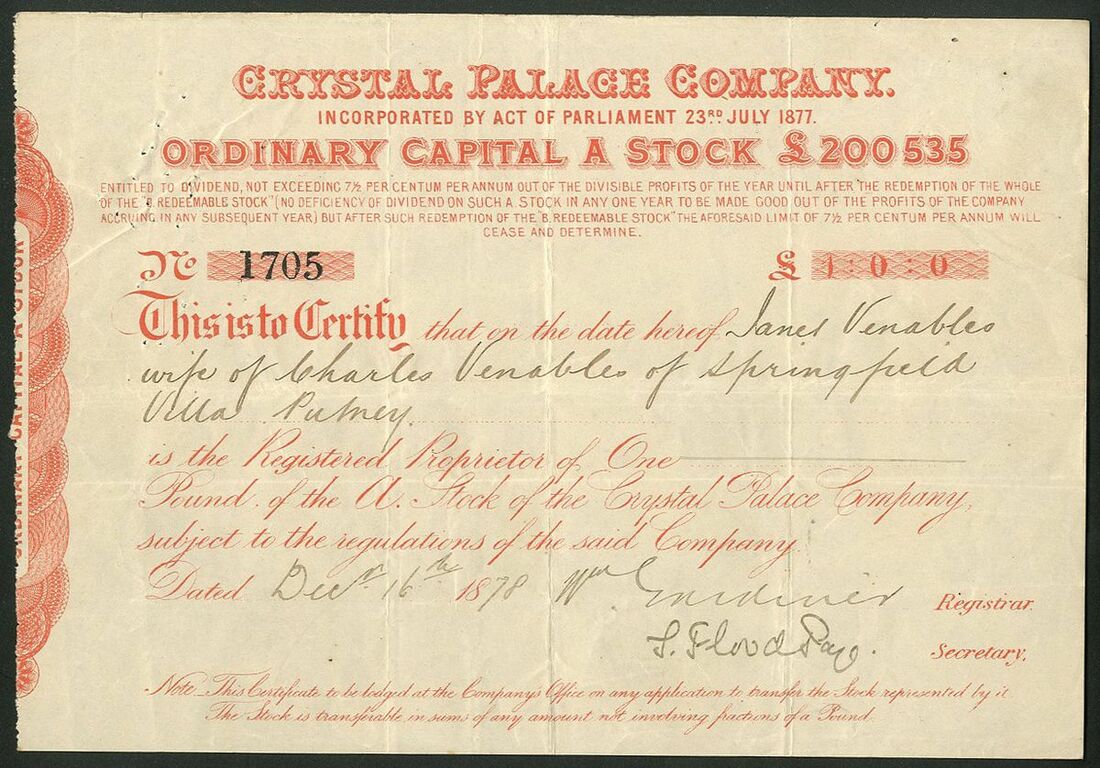 CRYSTAL PALACE COMPANY.
INCORPORATED BY ACT OF PARLIAMENT 23RD. JULY 1877.
ORDINARY CAPITAL A STOCK £200535
ENTITLED TO DIVIDEND, NOT EXCEEDING 7½ PER CENTUM PER ANNUM OUT OF THE DIVISIBLE PROFITS OF THE YEAR UNTIL AFTER THE REDEMPTION OF THE WHOLE
OF THE "B. REDEEMABLE STOCK" (NO DEFICIENCY OF DIVIDEND ON SUCH A. STOCK IN ANY ONE YEAR TO BE MADE GOOD OUT OF THE PROFITS OF THE COMPANY
ACCRUING IN ANY SUBSEQUENT YEAR) BUT AFTER SUCH REDEMPTION OF THE "B. REDEEMABLE STOCK" THE AFORESAID LIMIT OF 7½ PER CENTUM PER ANNUM WILL
CEASE AND DETERMINE.
No 1705 £ 1:0:0
This is to Certify that on the date hereof Janet Venables
wife of Charles Venables of Springfield
Villa Putney
is the Registered Proprietor of One
Pound of the A. Stock of the Crystal Palace Company,
subject to the regulations of the said Company.
Dated Decr. 16th 1878 Wm Gardiner Registrar.
S. Flood Page. Secretary.
Note. This Certificate to be lodged at the Company's Office on any application to transfer the Stock represented by it
The Stock is transferable in sums of any amount not involving fractions of a Pound.
ORDINARY CAPITAL A STOCK